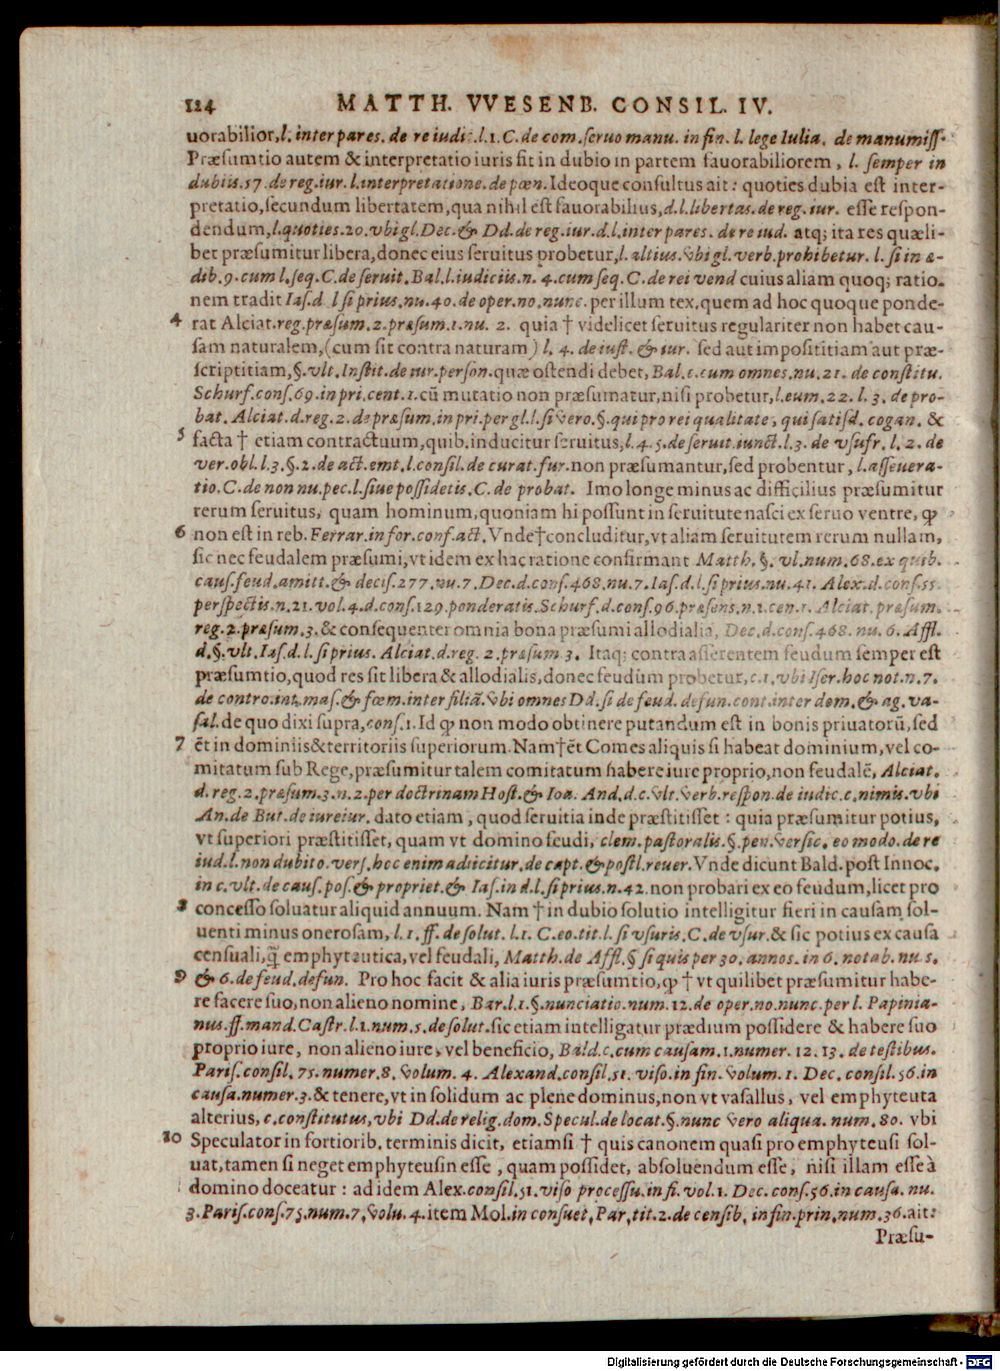 114 MATTH. VVESENB. CONSIL. IV.
uorabilior, l. inter pares. de re iudic. l. 1. C. de com. seruo manu. in fin. l. lege Iulia. de manumiss.
Præsumtio autem & interpretatio iuris fit in dubio in partem fauorabiliorem, l. semper in
dubiis. 57. de reg. iur. l. interpretatione. de pœn. Ideoque consultus ait: quoties dubia est inter-
pretatio, secundum libertatem, qua nihil est fauorabilius, d. l. libertas. de reg. iur. esse respon-
dendum, l. quoties. 20. vbi gl. Dec. & Dd. de reg. iur. d. l. inter pares. de re iud. atq; ita res quæli-
bet præsumitur libera, donec eius seruitus probetur, l. altius. vbi gl. verb. prohibetur. l. si in æ-
dib. 9. cum l. seq. C. de seruit. Bal. l. iudiciis. n. 4. cum seq. C. de rei vend cuius aliam quoq; ratio-
nem tradit Ias. d. l si prius. nu. 40. de oper. no. nunc. per illum tex. quem ad hoc quoque ponde-
4 rat Alciat. reg. præsum. 2. præsum. 1. nu. 2. quia † videlicet seruitus regulariter non habet cau-
sam naturalem, (cum sit contra naturam) l. 4. de iust. & iur. sed aut impositiam aut præ-
scriptitiam, §. vlt. Instit. de iur. person. quæ ostendi debet, Bal. c. cum omnes. nu. 21. de constitu.
Schurf. cons. 69. in pri. cent. 1. cũ mutatio non præsumatur, nisi probetur, l. eum. 22. l. 3. de pro-
bat. Alciat. d. reg. 2. de præsum. in pri. per gl. l. si vero. §. qui pro rei qualitate, qui satisd. cogan. &
5 facta † etiam contractuum, quib. inducitur seruitus, l. 4. 5. de seruit. iunct. l. 3. de vsufr. l. 2. de
ver. obl. l. 3. §. 2. de act. emt. l. consil. de curat. fur. non præsumantur, sed probentur, l. asseuera-
tio. C. de non nu. pec. l. siue possidetis. C. de probat. Imo longe minus ac difficilius præsumitur
rerum seruitus, quam hominum, quoniam hi possunt in seruitute nasci ex seruo ventre, ꝙ
6 non est in reb. Ferrar. in for. conf. act. Vnde † concluditur, vt aliam seruitutem rerum nullam,
sic nec feudalem præsumi, vt idem ex hac ratione confirmant Matth. §. vl. num. 68. ex quib.
caus. feud. amitt. & decis. 277. nu. 7. Dec. d. cons. 468. nu. 7. Ias. d. l. si prius. nu. 41. Alex. d. cons. 55.
perspectis. n. 21. vol. 4. d. cons. 129. ponderatis. Schurf. d. cons. 96. præsens. n. 1. cen. 1. Alciat. præsum.
reg. 2. præsum. 3. & consequenter omnia bona præsumi allodialia, Dec. d. cons. 468. nu. 6. Affl.
d. §. vlt. Ias. d. l. si prius. Alciat. d. reg. 2. præsum 3. Itaq; contra asserentem feudum semper est
præsumtio, quod res sit libera & allodialis, donec feudum probetur, c. 1. vbi Iser. hoc not. n. 7.
de contro. int. mas. & fœm. inter filiã. vbi omnes Dd. si de feud. defun. cont. inter dom. & ag. va-
sal. de quo dixi supra, cons. 1. Id ꝙ non modo obtinere putandum est in bonis priuatorũ, sed
7 ẽt in dominiis & territoriis superiorum. Nam † ẽt Comes aliquis si habeat dominium, vel co-
mitatum sub Rege, præsumitur talem comitatum habere iure proprio, non feudalẽ, Alciat.
d. reg. 2. præsum. 3. n. 2. per doctrinam Host. & Ioa. And. d. c. vlt. verb. respon. de iudic. c. nimis. vbi
An. de But. de iureiur. dato etiam, quod seruitia inde præstitisset: quia præsumitur potius,
vt superiori præstitisset, quam vt domino feudi, clem. pastoralis. §. pen. versic. eo modo. de re
iud. l. non dubito. vers. hoc enim adiicitur. de capt. & postl. reuer. Vnde dicunt Bald. post Innoc.
in c. vlt. de caus. pos. & propriet. & Ias. in d. l. si prius. n. 42. non probari ex eo feudum, licet pro
8 concesso soluatur aliquid annuum. Nam † in dubio solutio intelligitur fieri in causam sol-
uenti minus onerosam, l. 1. ff. de solut. l. 1. C. eo. tit. l. si vsuris. C. de vsur. & sic potius ex causa
censuali, q̃ emphyteutica, vel feudali, Matth. de Affl. § si quis per 30. annos. in 6. notab. nu. 5.
9 & 6. de feud. defun. Pro hoc facit & alia iuris præsumtio, ꝙ † vt quilibet præsumitur habe-
re facere suo, non alieno nomine, Bar. l. 1. §. nunciatio. num. 12. de oper. no. nunc. per l. Papinia-
nus. ff. mand. Castr. l. 1. num. 5. de solut. sic etiam intelligatur prædium possidere & habere suo
proprio iure, non alieno iure, vel beneficio, Bald. c. cum causam. 1. numer. 12. 13. de testibus.
Paris. consil. 75. numer. 8. volum. 4. Alexand. consil. 51. viso. in fin. volum. 1. Dec. consil. 56. in
causa. numer. 3. & tenere, vt in solidum ac plene dominus, non vt vasallus, vel emphyteuta
alterius, c. constitutus, vbi Dd. de relig. dom. Specul. de locat. §. nunc vero aliqua. num. 80. vbi
10 Speculator in fortiorib. terminis dicit, etiamsi † quis canonem quasi pro emphyteusi sol-
uat, tamen si neget emphyteusin esse, quam possidet, absoluendum esse, nisi illam esse à
domino doceatur: ad idem Alex. consil. 51. viso processu. in fi. vol. 1. Dec. cons. 56. in causa. nu.
3. Paris. cons. 75. num. 7. volu. 4. item Mol. in consuet. Par. tit. 2. de censib. in fin. prin. num. 36. ait:
Præsu-
Digitalisierung gefördert durch die Deutsche Forschungsgemeinschaft - DFG